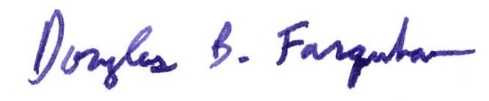 Douglas B. Farquhar